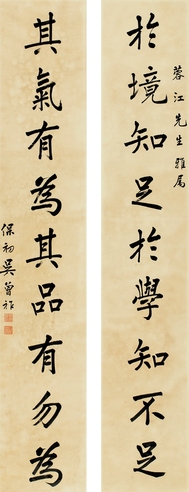 於境知足於學知不足
蓉江先生雅属
其氣有為其品有勿為
保初吴曾祚